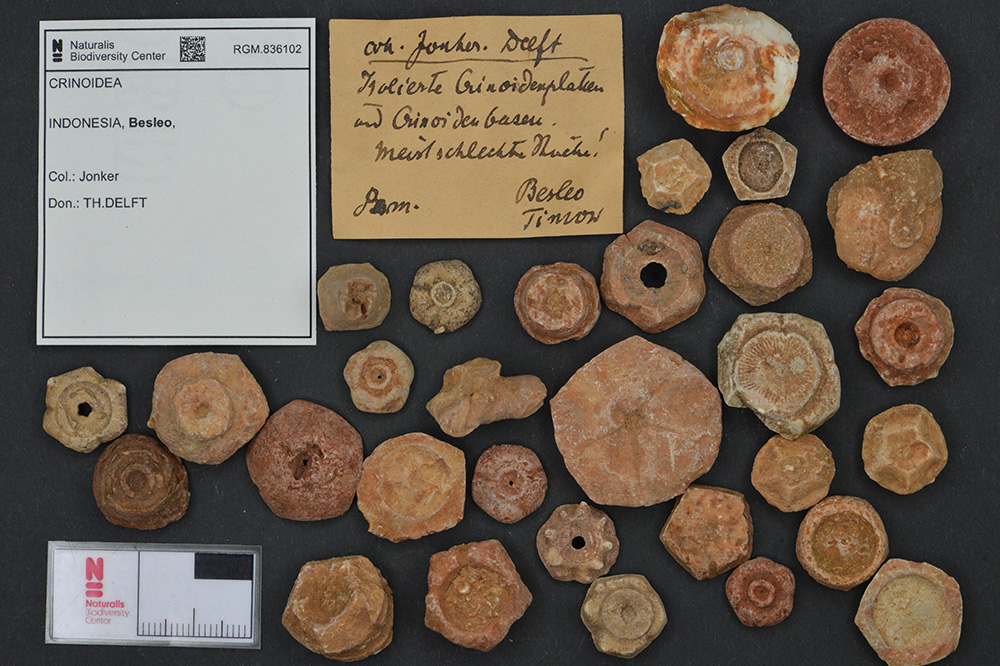 Naturalis
Biodiversity Center
RGM.836102
CRINOIDEA
INDONESIA, Besleo,
Col.: Jonker
Don.: TH.DELFT
coll. Jonker. Delft
Isolierte Crinoidenplatten
und Crinoidenbasen.
Meist schlechte Stücke!
Perm.
Besleo
Timor
Naturalis
Biodiversity
Center